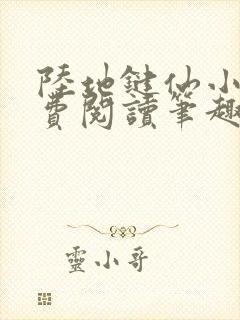 陸地鍵仙小
費閱讀筆趣
靈小哥